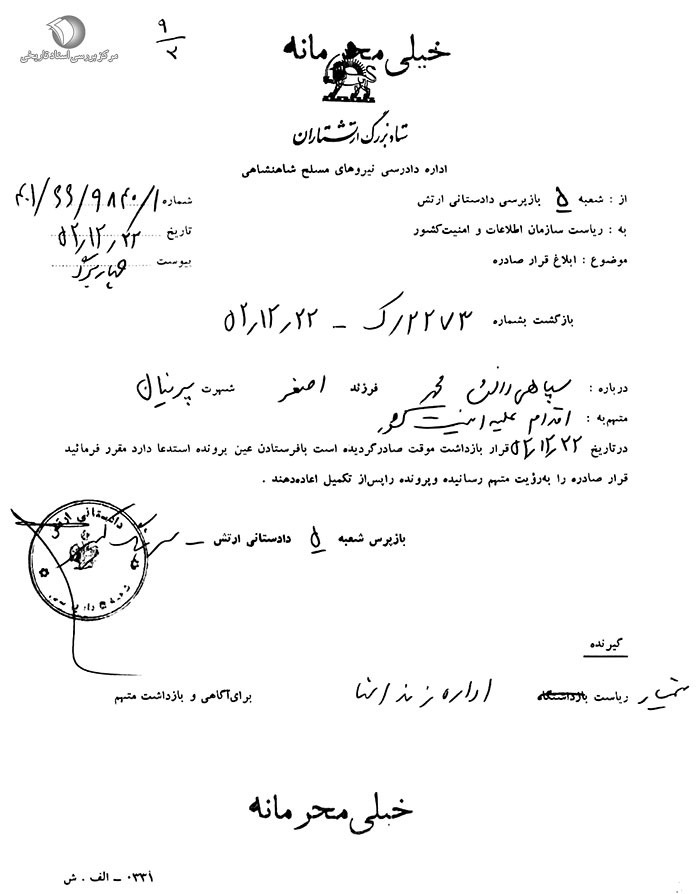 مرکز بررسی اسناد تاریخی
۹
۲
خیلی محرمانه
ستاد بزرگ ارتشتاران
اداره دادرسی نیروهای مسلح شاهنشاهی
از : شعبه ۵ بازپرسی دادستانی ارتش
شماره
به : ریاست سازمان اطلاعات و امنیت کشور
تاریخ ۵۲٫۱۲٫۲۲
موضوع : ابلاغ قرار صادره
پیوست
بازگشت بشماره ۲۲۷۳/ک – ۵۲٫۱۲٫۲۲
درباره : سپاهی دانش محمد فرزند اصغر شهرت پرنیان
متهم به : اقدام علیه امنیت کشور
در تاریخ ۵۲٫۱۲٫۲۲ قرار بازداشت موقت صادرگردیده است بافرستادن عین پرونده استدعا دارد مقرر فرمائید
قرار صادره را به‌رؤیت متهم رسانیده وپرونده راپس‌از تکمیل اعاده‌دهند .
بازپرس شعبه ۵ دادستانی ارتش –
دادستانی ارتش
گیرنده
ریاست بازداشتگاه اداره برای‌آگاهی و بازداشت متهم
خیلی محرمانه
۰۳۳۱ – الف . ش